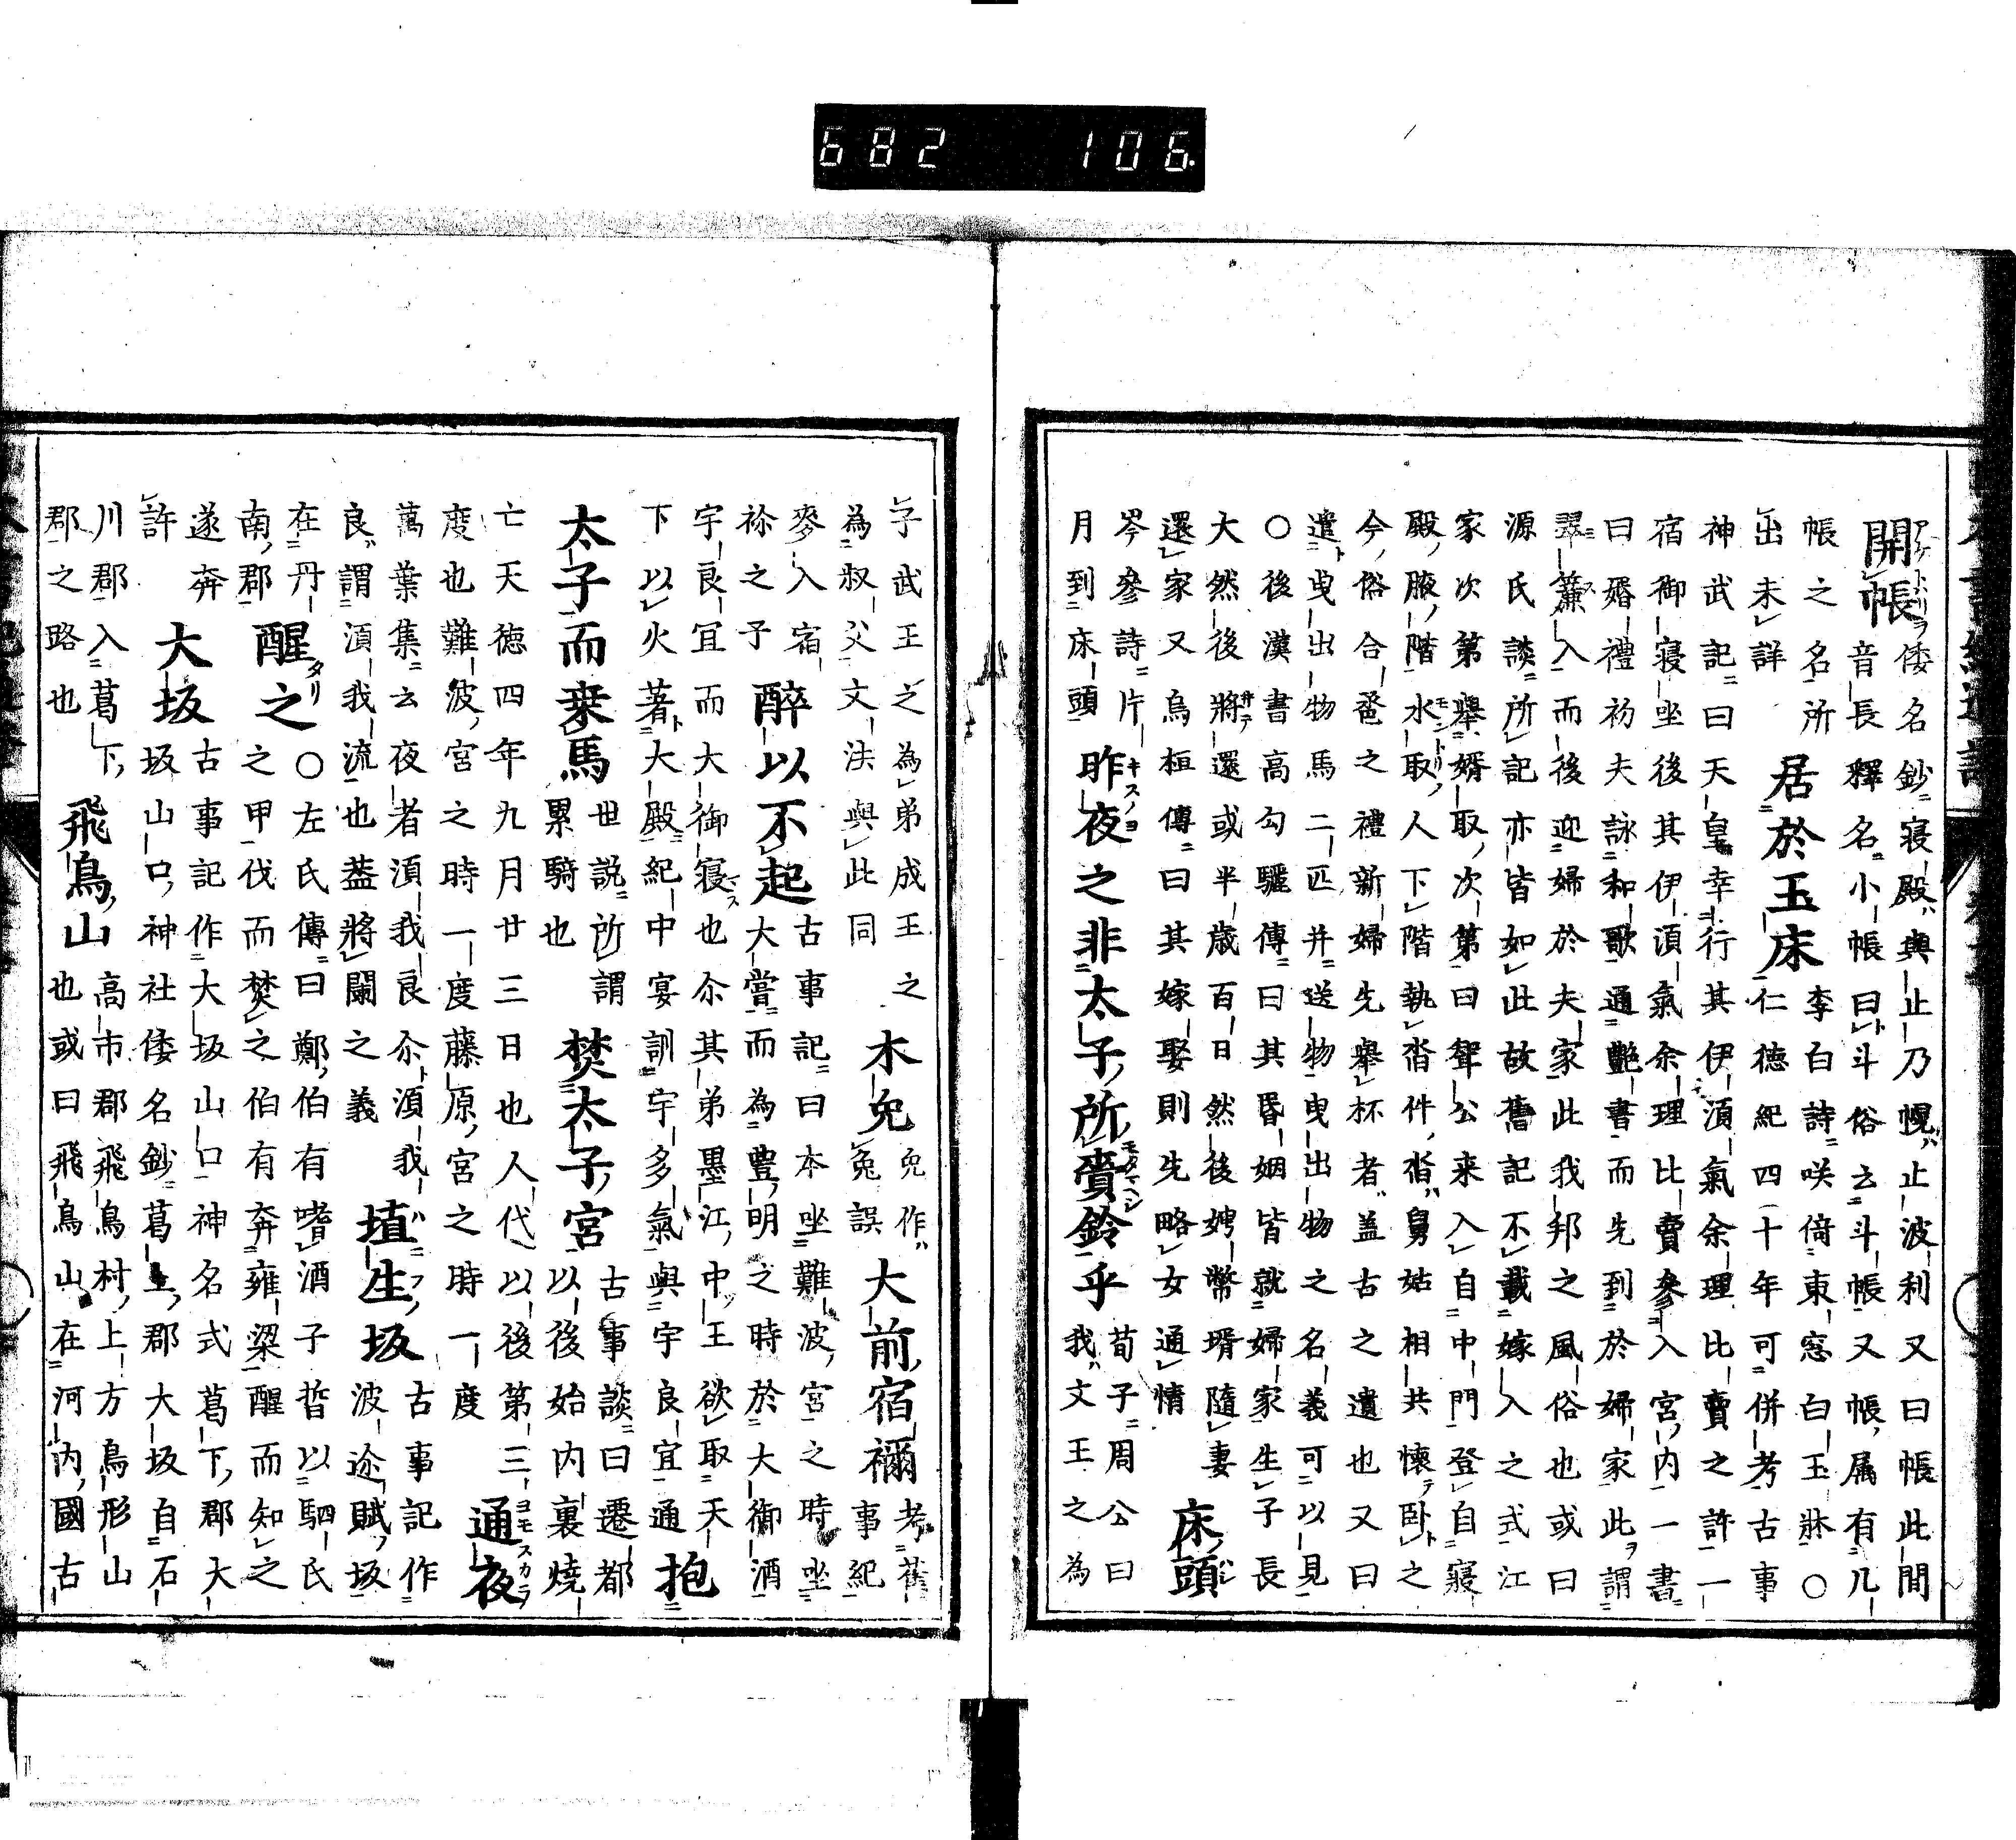 682 106
開帳倭名鈔寝殿與止乃幌止波利又曰帳此間
音長釋名小帳曰斗俗云斗帳又帳属有几
帳之名所
居於玉床李白詩咲倚東窓白玉牀〇
出未詳
仁徳紀四十年可併考古事
神武記曰天皇幸行其伊湏氣余理比賣之許一
宿御寝坐後其伊湏氣余理比賣参入宮内一書
曰婚禮初夫詠和歌通艶書而先到於婦家此謂
翠簾入而後迎婦於夫家此我邦之風俗也或曰
源氏談所記亦皆如此故舊記不載嫁入之式江
家次第舉婿取次第曰聟公来入自中門登自寝
殿腋階水取人下階執沓件沓舅姑相共懐臥之
今俗合巹之禮新婦先舉杯者盖古之遺也又曰
遣曳出物馬二匹并送物曳出物之名義可以見
〇後漢書高勾驪傳曰其昏姻皆就婦家生子長
大然後將還或半歳百日然後娉幣壻隨妻
還家又烏桓傳曰其嫁娶則先略女通情
床頭
岑參詩片
月到床頭
昨夜之非太子所賷鈴乎荀子周公曰
我文王之為
子武王之為弟成王之
為叔父文法與此同
木兔兔作
菟誤
大前宿禰
考舊
事紀
麥入宿
祢之子
醉以不起古事記曰本坐難波宮之時坐
大嘗而為豊明之時於大御酒
宇良宜而大御寝也尒其弟墨江中王欲取天
下以火著大殿紀中宴訓宇多氣與宇良宜通
抱
太子而乗馬世説所謂
累騎也
焚太子宮古事談曰遷都
以後始内裏焼
亡天徳四年九月廿三日也人代以後第三
度也難波宮之時一度藤原宮之時一度
通夜
萬葉集云夜者湏我良尒湏我
良謂湏我流也盖將闌之義
埴生坂古事記作
波迩賦坂
在丹
南郡
醒之〇左氏傳曰鄭伯有嗜酒子晳以駟氏
之甲伐而焚之伯有奔雍梁醒而知之
遂奔
許
大坂古事記作大坂山口神名式葛下郡大
坂山口神社倭名鈔葛上郡大坂自石
川郡入葛下
郡之路也
飛鳥山高市郡飛鳥村上方鳥形山
也或曰飛鳥山在河内國古